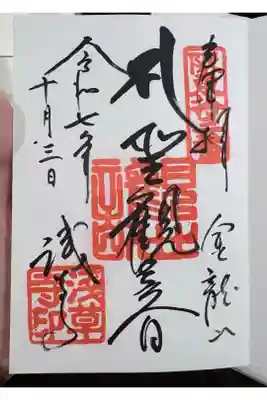 奉拝
金龍山
聖觀世音
令和七年
十月三日
浅草寺
浅草寺印